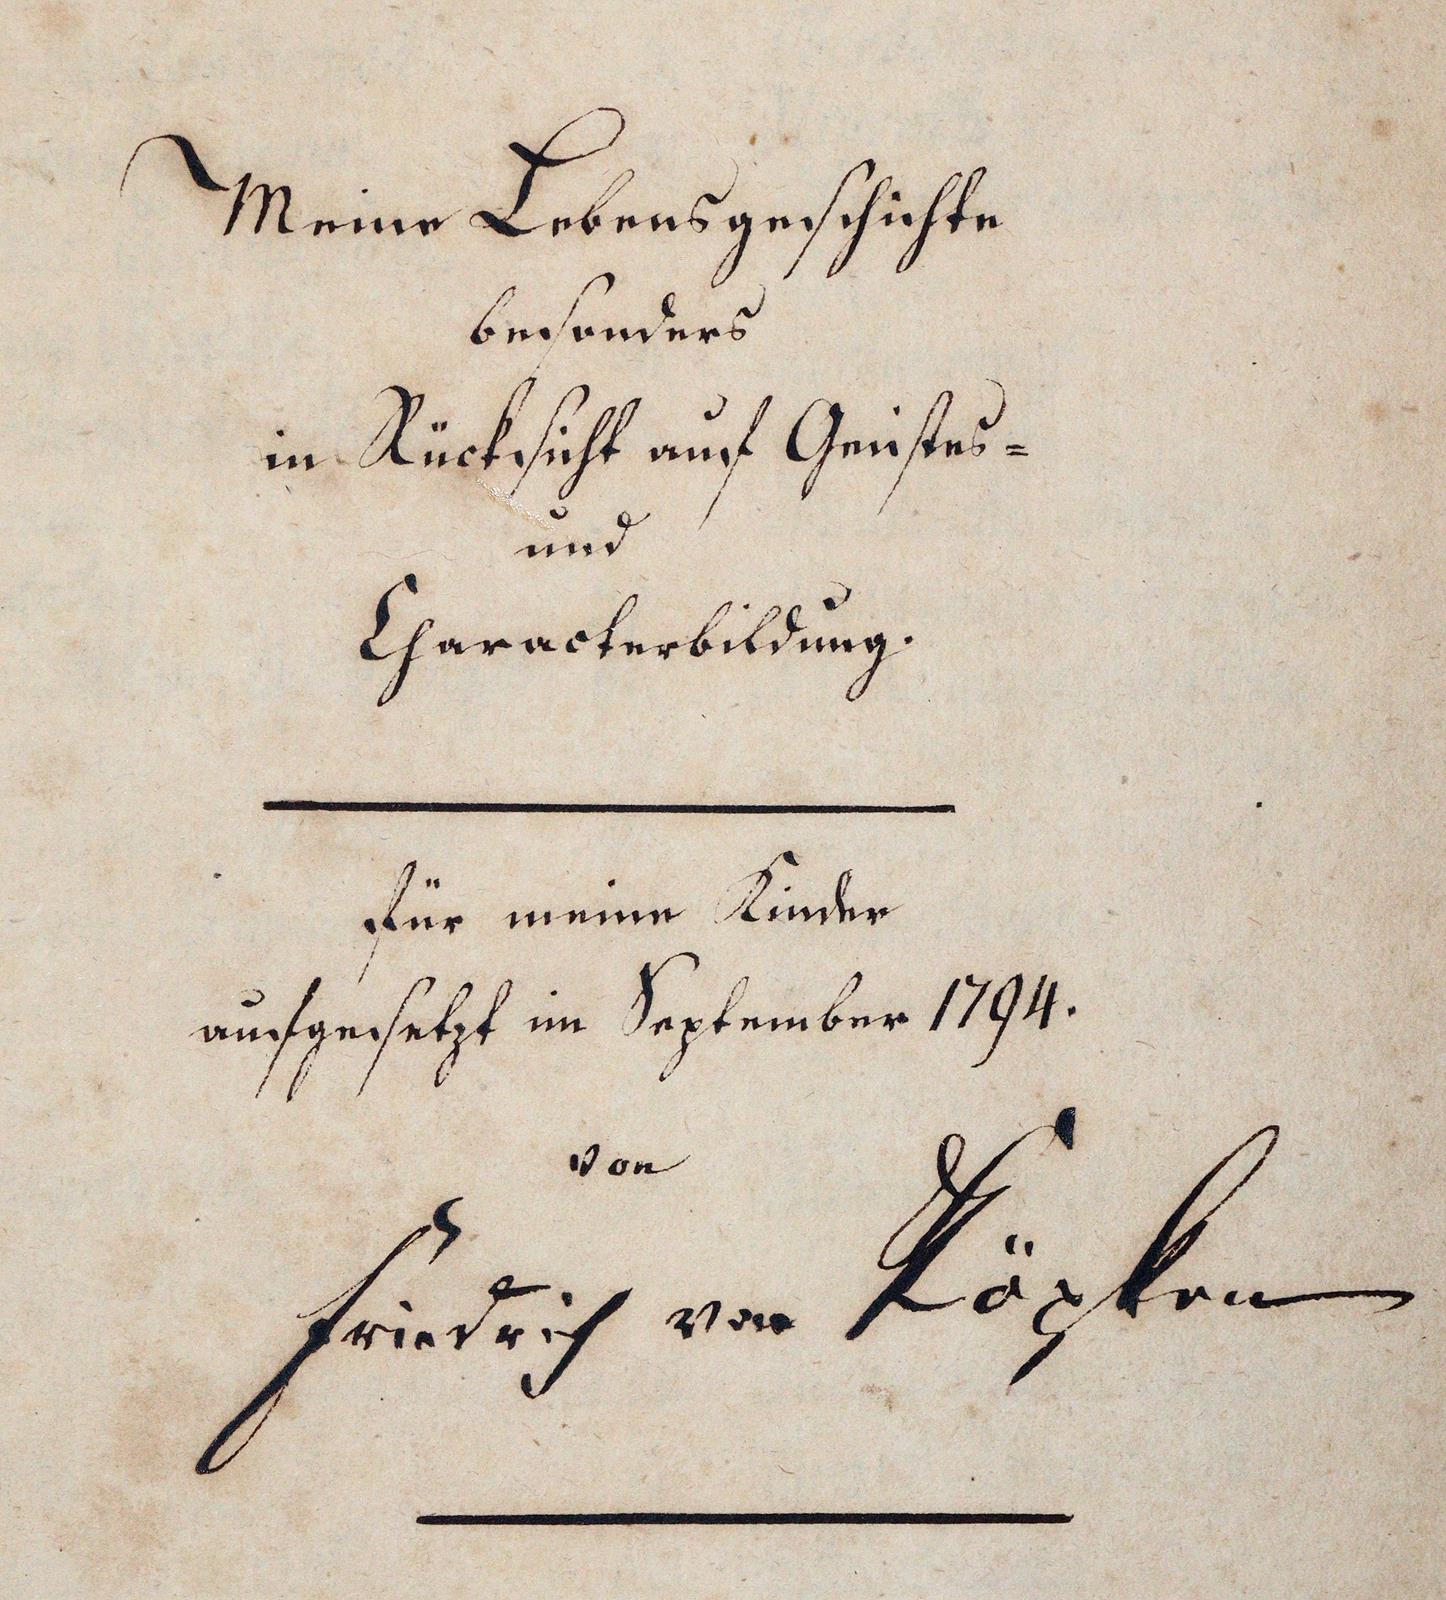 Meine Lebensgeschichte
besonders
in Rücksicht auf Geistes=
und
Characterbildung.
für meine Kinder
aufgesetzt im September 1794.
von
Friedrich von Köpken